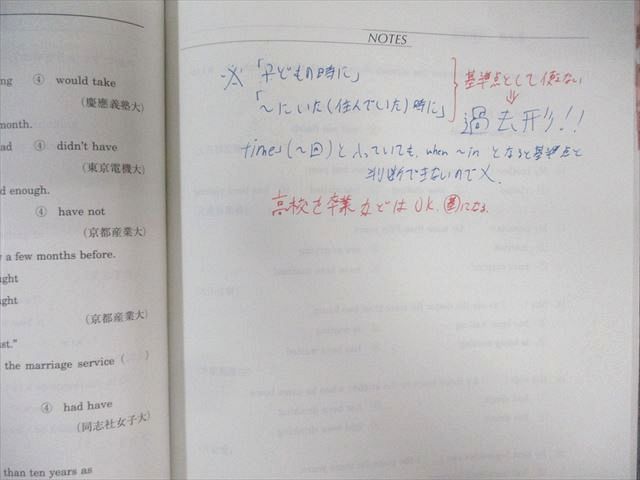 ng ④ would take
(慶應義塾大)
month.
ad ④ didn't have
(東京電機大)
d enough.
④ have not
(京都産業大)
y a few months before.
ught
ught
(京都産業大)
st."
the marriage service ( )
④ had have
(同志社女子大)
than ten years as
NOTES
※「子どもの時に」
「〜にいた(住んでいた)時に」
基準点として使えない
⇓
過去形!!
times(〜回)と入っていても、when 〜 in となると基準点と
判断できないので✕.
高校を卒業などはOK.
になる.